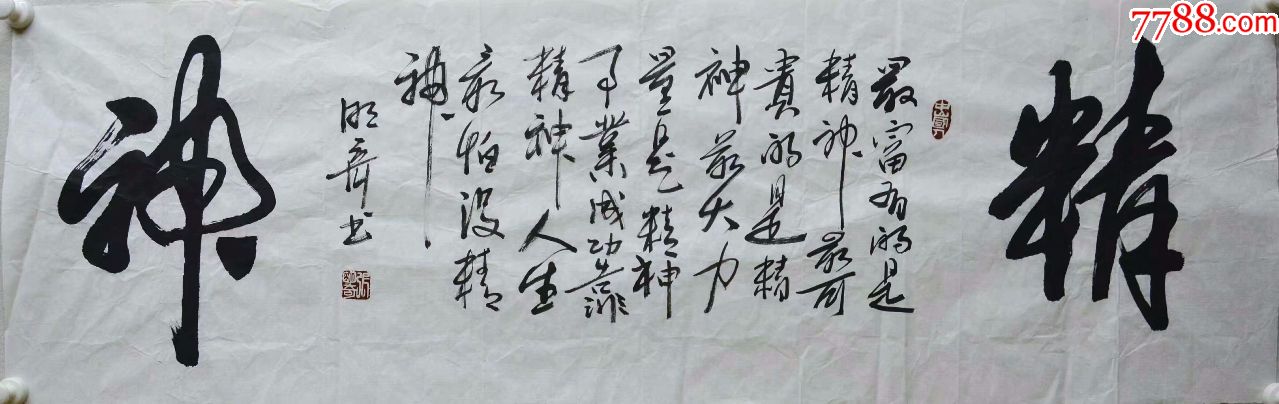 7788.com
精
最富有的是
精神最可
貴的是精
神最大力
量是精神
事業成功靠
精神人生
最怕没精
神
明书
神